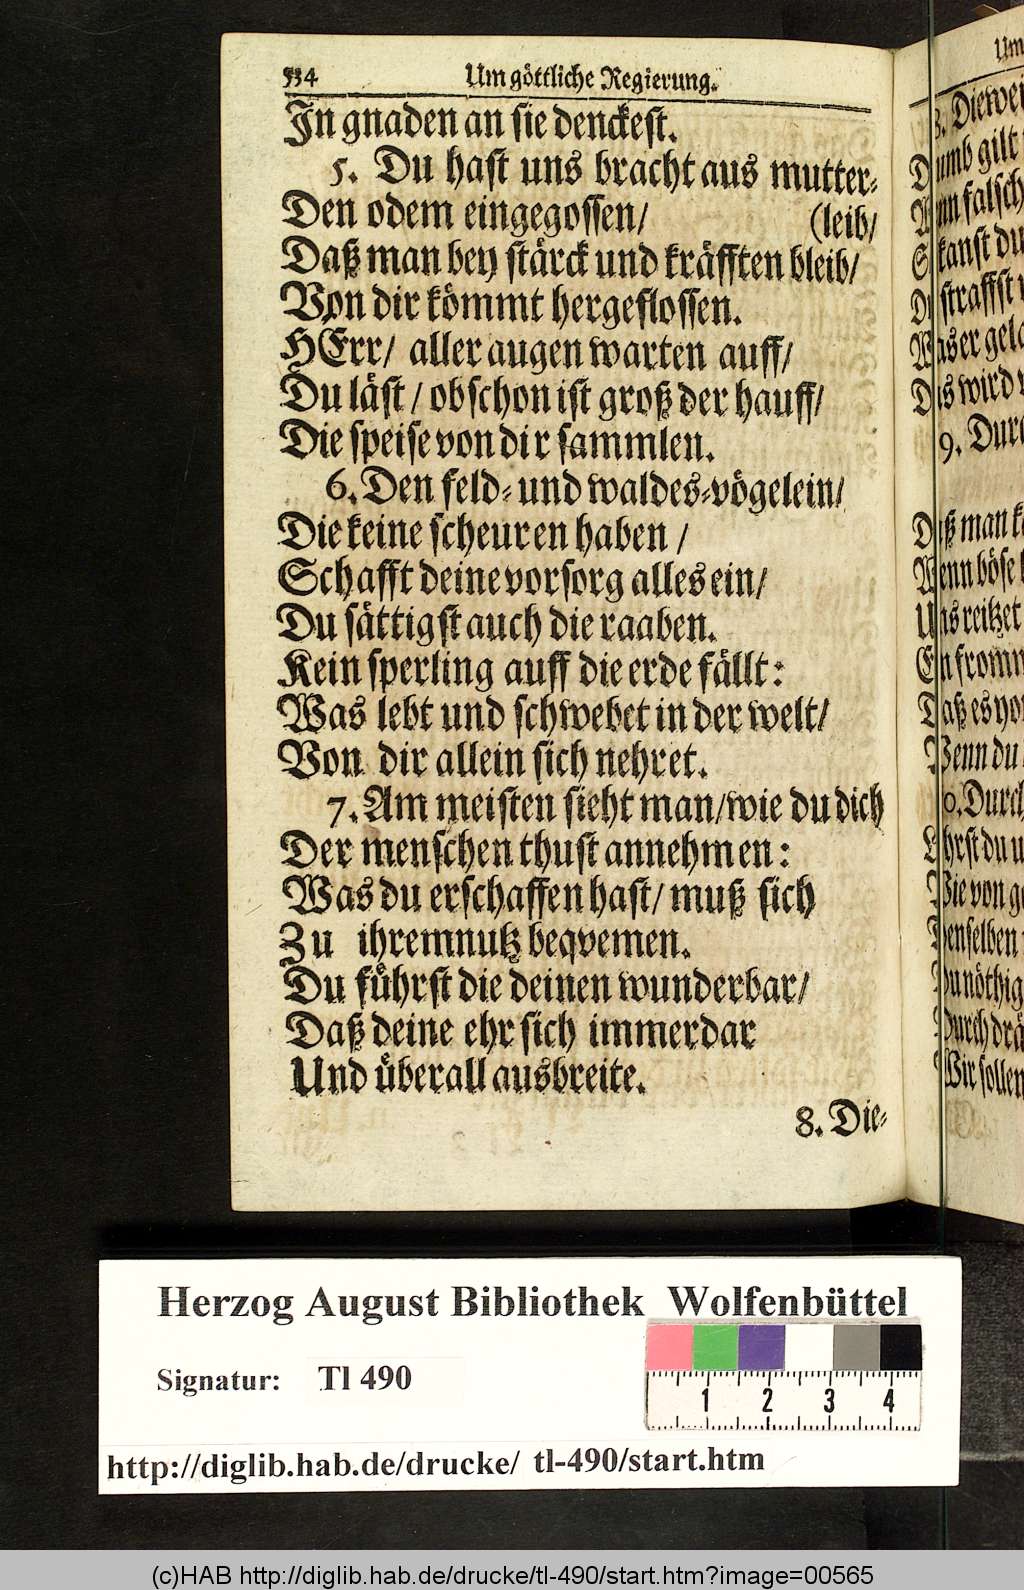 534 Um göttliche Regierung.
In gnaden an sie denckest.
5. Du hast uns bracht aus mutter-
Den odem eingegossen/ (leib/
Daß man bey stärck und kräfften bleib/
Von dir kömmt hergeflossen.
HErr/ aller augen warten auff/
Du läst/ obschon ist groß der hauff/
Die speise von dir sammlen.
6. Den feld- und waldes-vögelein/
Die keine scheuren haben/
Schafft deine vorsorg alles ein/
Du sättigst auch die raaben.
Kein sperling auff die erde fällt:
Was lebt und schwebet in der welt/
Von dir allein sich nehret.
7. Am meisten sieht man/wie du dich
Der menschen thust annehmen:
Was du erschaffen hast/ muß sich
Zu ihrem nutz beqvemen.
Du führst die deinen wunderbar/
Daß deine ehr sich immerdar
Und überall ausbreite.
8. Die-
Herzog August Bibliothek Wolfenbüttel
Signatur: Tl 490
1 2 3 4
http://diglib.hab.de/drucke/ tl-490/start.htm
(c)HAB http://diglib.hab.de/drucke/tl-490/start.htm?image=00565